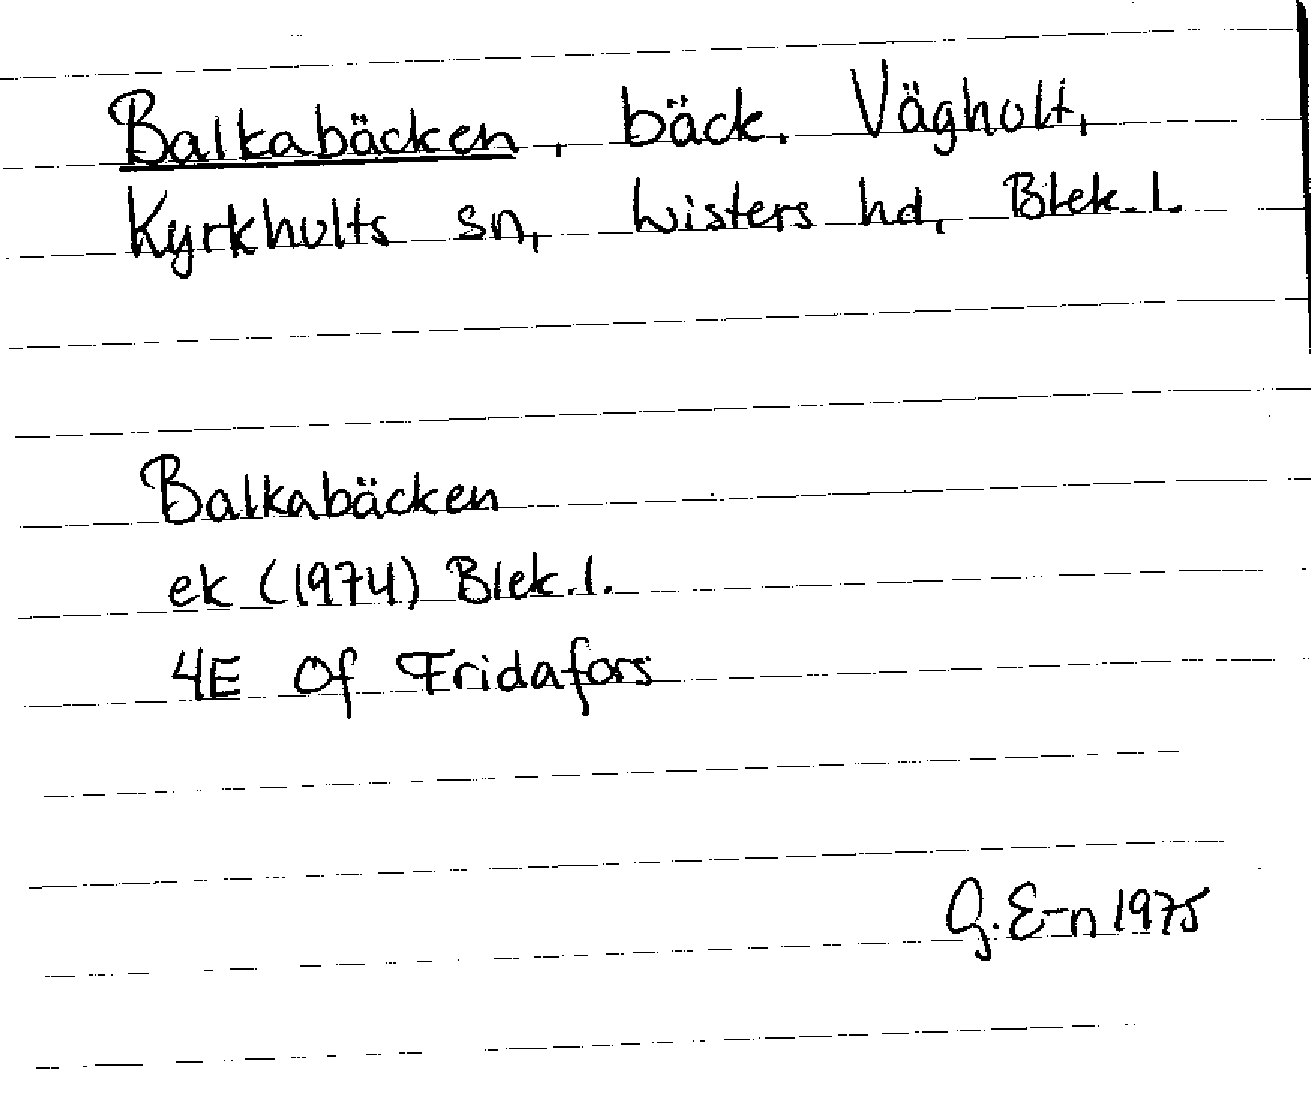 Balkabäcken, bäck. Vägholt,
Kyrkhults sn, Listers hd, Blek. l.
Balkabäcken
ek (1974) Blek. l.
4E 0f Fridafors
G. E-n 1975